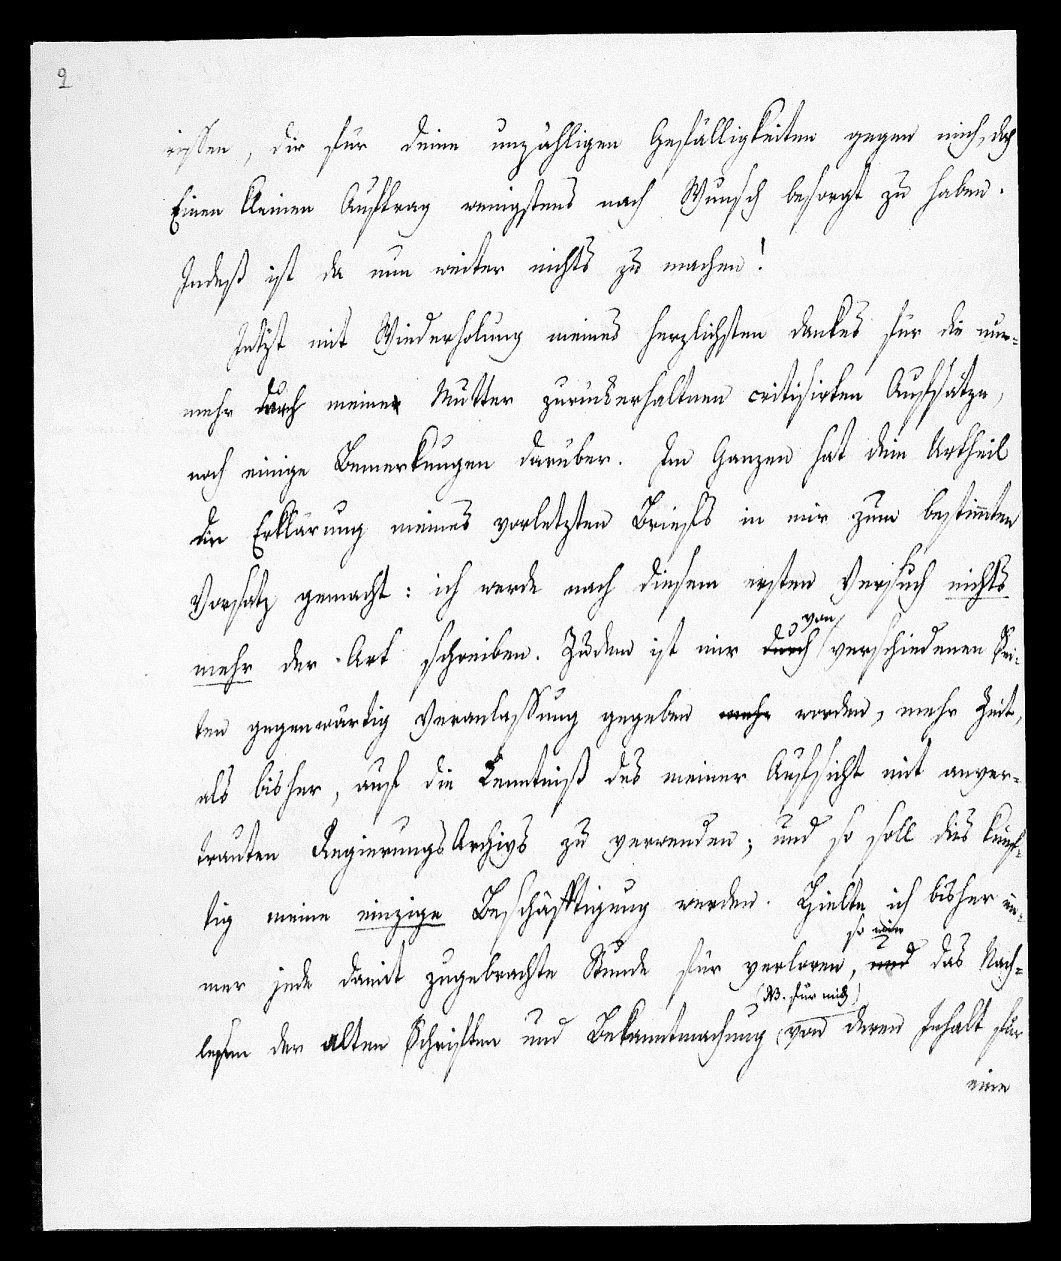 2
wissen, dir für deine unzähligen Gefälligkeiten gegen mich, doch
Einen kleinen Auftrag wenigstens nach Wunsch besorgt zu haben.
Indeß ist da nun weiter nichts zu machen!
Jetzt mit Wiederholung meines herzlichsten Dankes für die nun-
mehr durch meiner Mutter zurückerhaltnen critisirten Aufsätze,
noch einige Bemerkungen darüber. Im Ganzen hat dein Urtheil
die Erklärung meines vorletzten Briefs in mir zum bestimten
Vorsatz gemacht: ich werde nach diesem ersten Versuch nichts
mehr der Art schreiben. Zudem ist mir durch von verschiedenen Sei-
ten gegenwärtig Veranlassung gegeben mehr worden, mehr Zeit,
als bisher, auf die Kenntniß des meiner Aufsicht mit anver-
trauten RegierungsArchivs zu verwenden; und so soll dies künf-
tig meine einzige Beschäftigung werden. Hielte ich bisher im-
mer jede damit zugebrachte Stunde für verloren, und so wie das Nach-
lesen der alten Schriften und Bekanntmachung (NB. für mich) von deren Inhalt für
eine